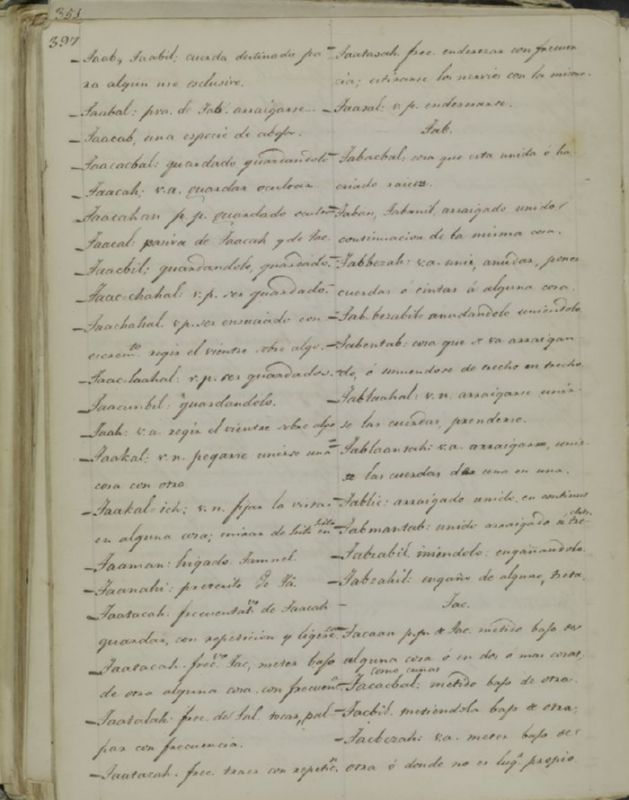 351
397
Taab, Taabil; cuerda destinada pa-
ra algun uso exclusivo.
Taabal: pva. de Tab. arraigarse.
Taacab, una especie de abeja.
Taacacbal: guardado guardandolo
Taacah: v.a. guardar ocultar
Taacahan p. p. guardado
Taacal: pasiva de Taacah y de Tac.
Taacbil; guardandolo, guardado.
Taac-chahal: v.p. ser guardado.
Taachahal. v.p. ser ensuciado con
escrem.to regir el vientre sobre algo.
Taac-laahal: v.p. ser guardados.
Taacunbil: guardandolo.
Taah: v.a. regir el vientre sobre algo
Taakal: v.n. pegarse unirse una
cosa con otro
Taakal-ich; v.n. fijar la vista
en alguna cosa; mirar de hito en hito
Taaman: higado
Taanahi: preterito de Tá.
Taatacah. frecuentat.vo de Taacah
guardar, con repeticion y
Taatacah. frec.vo Tac, meter bajo
de otra alguna cosa con frecuen.a
Taatalah: frec. de Tal. tocar, pal-
par con frecuencia.
Taatazah. frec. traer con repetic.n
Taatazah frec. enderezar con frecuen-
cia; estirarse los nervios con la misma.
Taazal: v.p. enderezarse.
Tab.
Tabacbal: cosa que esta unida ó ha
criado raices.
Taban, Tabanil, arraigado unido,
continuacion de la misma cosa.
Tabbezah: v.a. unir, anudar, poner
cuerdas ó cintas á alguna cosa.
Tab-bezabil: anudandolo uniendolo
Tabentab: cosa que se va arraigan
do, ó uniendose de trecho en trecho
Tablaahal: v.n. arraigarse unir-
se las cuerdas, prenderse.
Tablaanzah: v.a. arraigarse, unir
se las cuerdas de una en una.
Tablic: arraigado unido en continuo
Tabmantab: unido arraigado á tre-
chos.
Tabzabil. uniendolo: engañandolo.
Tabzahil: engaño de alguno, treta.
Tac.
Tacaan p.p. de Tac. metido bajo de
alguna cosa ó en dos ó mas cosas,
como cuñas
Tacacbal: metido bajo de otra.
Tacbil. metiendola bajo de otra.
Tacbezah: v.a. meter bajo de
otra ó donde no es lug.r propio